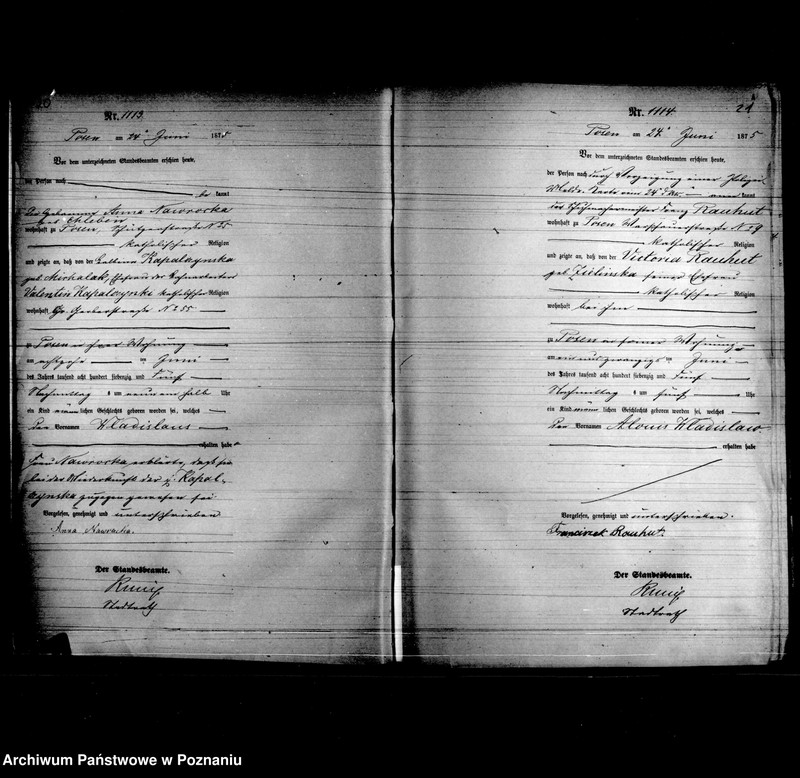 Nr. 1113.
Posen am 24ten Juni 1875
Vor dem unterzeichneten Standesbeamten erschien heute,
der Person nach
be kannt
Die Hebamme Anna Nawrocka
geb.
wohnhaft zu Posen, Schützenstraße N 25
katholischer Religion
und zeigte an, daß von der Kapalczynska
geb. Michalak, Ehefrau des
Valentin Kapalczynski katholischer Religion
wohnhaft Gr. Gerberstraße No 55
zu Posen in ihrer Wohnung
am achtzehn ten Juni
des Jahres tausend acht hundert siebenzig und fünf
Nachmittag s um neun ein halb Uhr
ein Kind männ lichen Geschlechts geboren worden sei, welches
den Vornamen Wladislaus
erhalten habe
Frau Nawrocka erklärte, daß sie
bei der Niederkunft der p. Kapal-
czynska zugegen gewesen sei
Vorgelesen, genehmigt und unterschrieben
Anna Nawrocka.
Der Standesbeamte.
Stadtrath
21
Nr. 1114.
Posen am 24ten Juni 1875
Vor dem unterzeichneten Standesbeamten erschien heute,
der Person nach durch Vorzeigung einer Polizei
Melde-Karte vom 24 kannt
der Schuhmachermeister Franz Rauhut
wohnhaft zu Posen Warschauerstraße No 9
katholischer Religion
und zeigte an, daß von der Victoria Rauhut
geb. Zielinska seiner Ehefrau
katholischer Religion
wohnhaft bei ihm
zu Posen in seiner Wohnung
am ein und zwanzigsten Juni
des Jahres tausend acht hundert siebenzig und fünf
Nachmittag s um fünf Uhr
ein Kind männ lichen Geschlechts geboren worden sei, welches
den Vornamen Alouis Wladislaw
erhalten habe
Vorgelesen, genehmigt und unterschrieben.
Franciszek Rauhut.
Der Standesbeamte.
Stadtrath
Archiwum Państwowe w Poznaniu